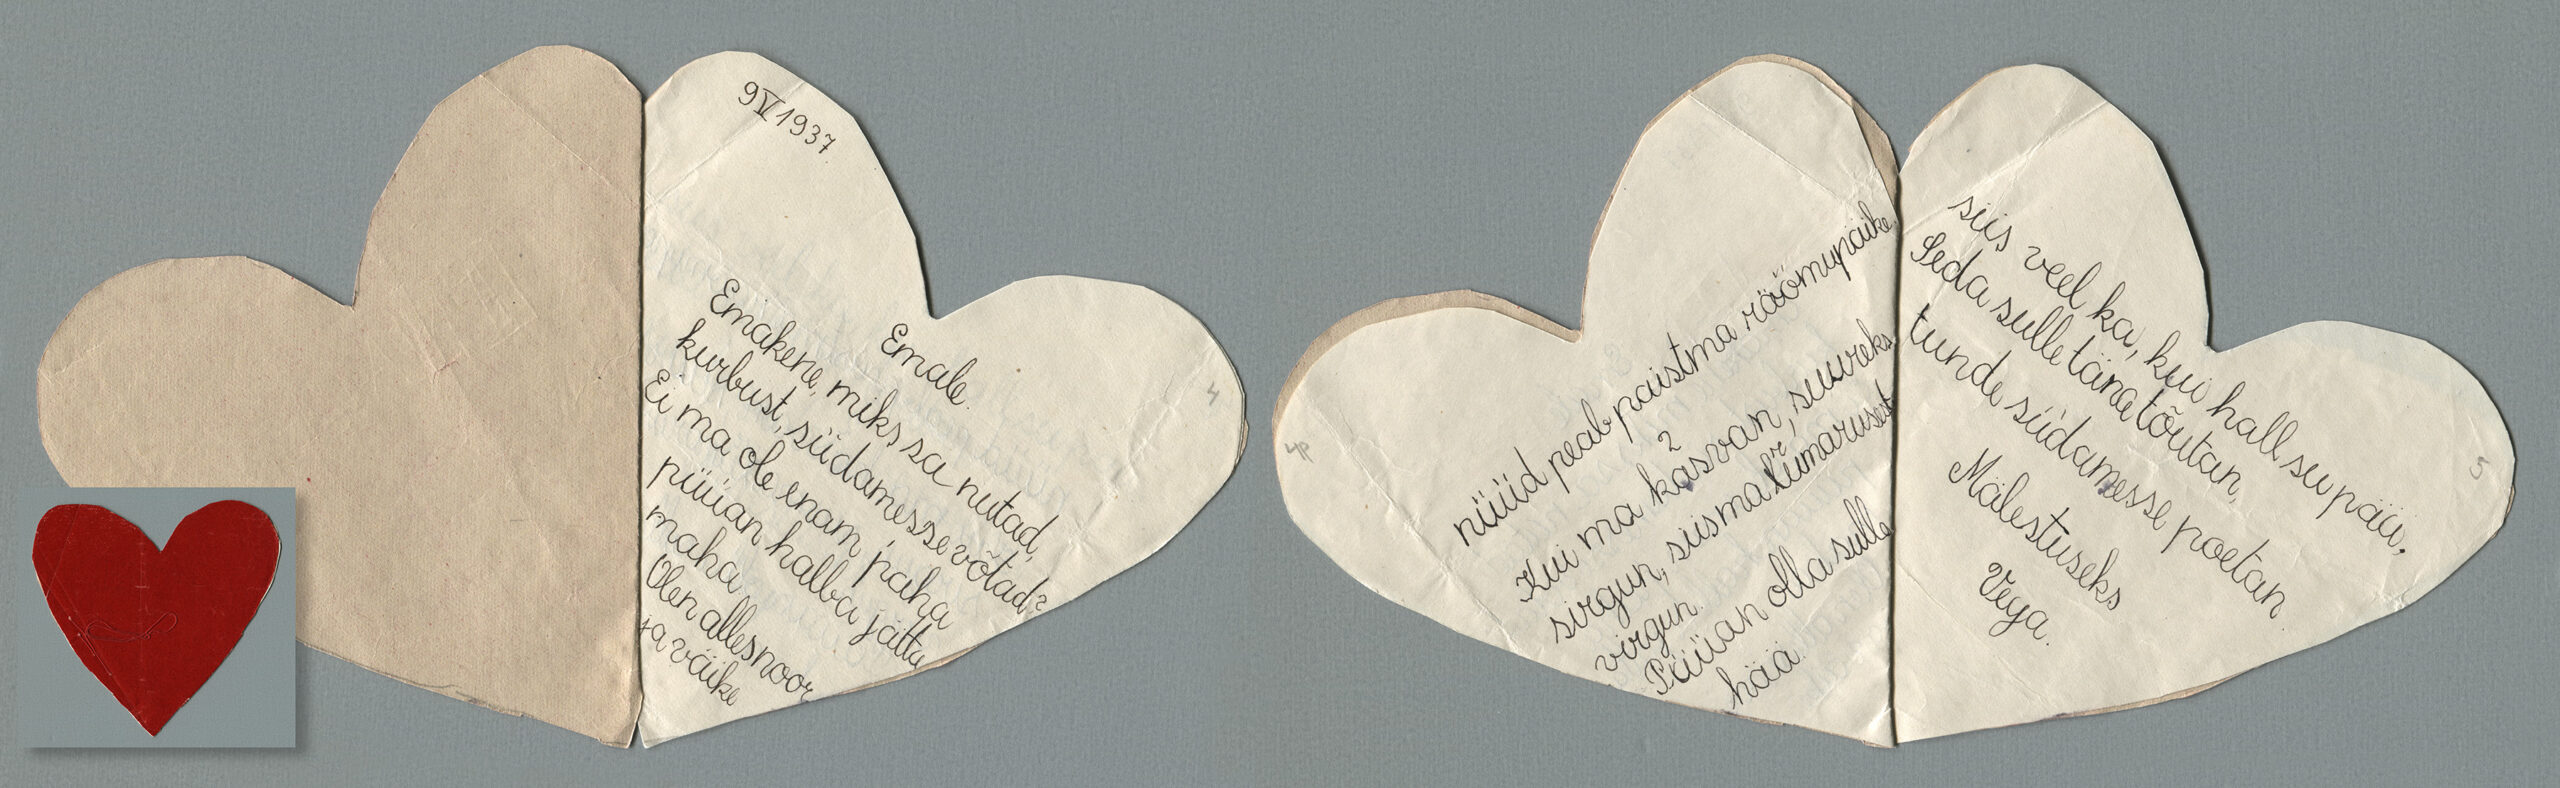 9 V 1937
Emale.
Emakene, miks sa nutad,
kurbust, südamesse võtad?
Ei ma ole enam, paha
püüan halba jätta
maha,
Olen alles noor
ja väike
4
4p
nüüd peab paistma rõõmupäike.
2
Kui ma kasvan, suureks
sirgun, siis ma
virgun.
Püüan olla sulle
hää.
siis veel ka, kui hall su pää,
Seda sulle täna tõutan,
tunde südamesse poetan
Mälestuseks
Veya.
5